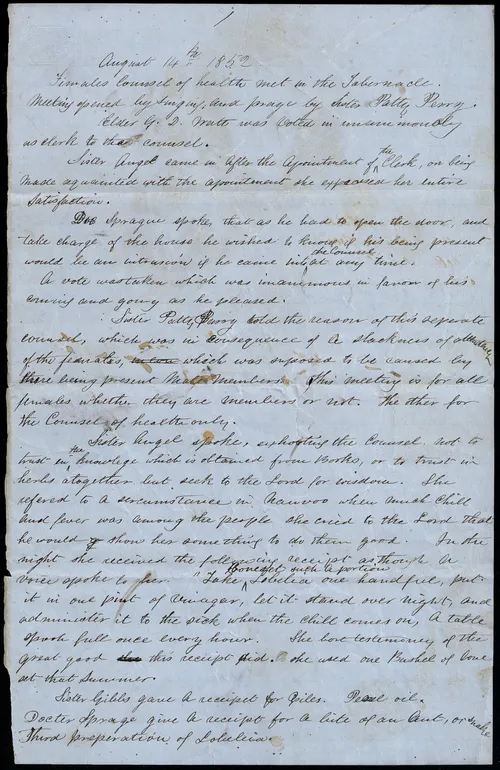 1
August 14th 1852
Females counsel of health met in the Tabernacle.
Meeting opened by singing, and prayr by sister Patty Perry.
Elder G. D. Watt was voted in unanimously
as clerk to that counsel.
Sister Angel came in after the Apointment of the Clerk, on being
made aquainted with the apointment she expressed her entire
Satisfaction.
Doc Sprague spoke, that as he had to open the door, and
take charge of the house he wished to know if his being present
would be an intrusion if he came into the Counsel at any time.
A vote was taken which was unanimous in favor of his
coming and going as he pleased.
Sister Patty Perry told the reason of this seperate
counsel, which was in consequence of a slackness of attendance
of the females, which was suposed to be caused by
there being present Male Members. This meeting is for all
females whether they are members or not. The other for
the Counsel of health only.
Sister Angel spoke, exhorting the Counsel not to
trust in the Knowlege which is obtained from Books, or to trust in
herbs altogether but seek to the Lord for wisdom. She
refered to a sercumstance in Nauvoo when much Chill
and fever was among the people she cried to the Lord that
he would show her something to do them good. In the
night she received the following receipt as though a
voice spoke to her "Take Lobelia one handful, put
it in one pint of Vinager, let it stand over night, and
administer it to the sick when the chill comes on, a table
spoon full once every hour. She bore testemony of the
great good this receipt did. she used one Bushel of
at that Summer.
Sister Gibbs gave a receipt for Piles. oil.
Docter Sprage give a receipt for a bite of an Ant, or snake
Third preperation of Lobelia.